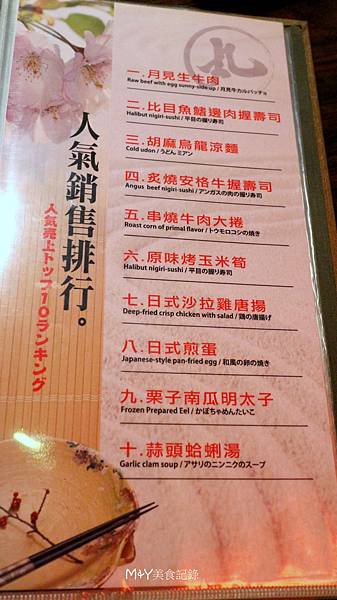 丸
人氣銷售排行。
人気売上トップ10ランキング
一.月見生牛肉
Raw beef with egg sunny-side up / 月見牛カルパッチョ
二.比目魚鰭邊肉握壽司
Halibut nigiri-sushi / 平目の握り寿司
三.胡麻烏龍涼麵
Cold udon / うどん ミアン
四.炙燒安格牛握壽司
Angus beef nigiri-sushi / アンガスの肉の握り寿司
五.串燒牛肉大捲
Roast corn of primal flavor / トウモロコシの焼き
六.原味烤玉米筍
Halibut nigiri-sushi / 平目の握り寿司
七.日式沙拉雞唐揚
Deep-fried crisp chicken with salad / 鶏の唐揚げ
八.日式煎蛋
Japanese-style pan-fried egg / 和風の卵の焼き
九.栗子南瓜明太子
Frozen Prepared Eel / かぼちゃめんたいこ
十.蒜頭蛤蜊湯
Garlic clam soup / アサリのニンニクのスープ
M+Y美食記錄